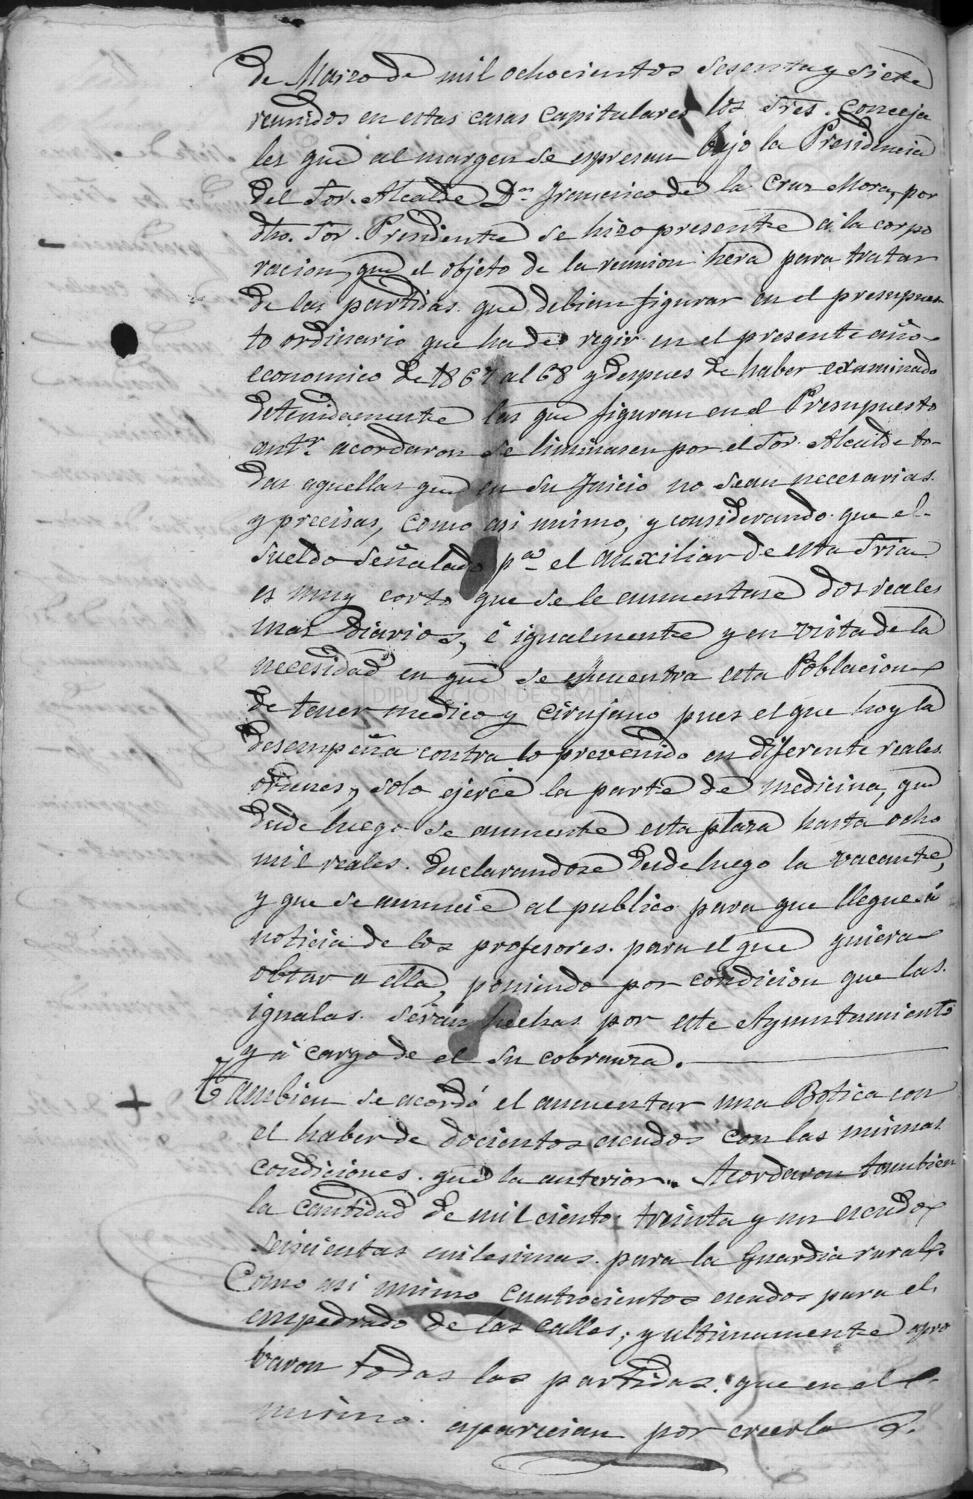 de Marzo de mil ochocientos sesenta y siete
reunidos en estas casas capitulares los Sres. Conceja
les que al margen se espresan bajo la Presidencia
del Sor. Alcalde Dn Francisco de la Cruz Mora, por
dho. Sor. Presidente se hizo presente á la corpo
racion, que el objeto de la reunion hera para tratar
de las partidas que debien figurar en el presupues
to ordinario que ha de regir en el presente año
economico de 1867 al 68 y despues de haber examinado
detenidamente las que figuran en el Presupuesto
antr. acordaron se liminasen por el Sor. Alcalde to-
das aquellas que en su Juicio no sean necesarias
y precisas, como asi mismo, y considerando que el
sueldo señalado pa el auxiliar de esta Sria
es muy corto que se le aumentase dos reales
mas diarios, é igualmente y en vista de la
necesidad en que se encuentra esta Poblacion
de tener medico y cirujano pues el que hoy la
desempeña contra lo prevenido en diferente reales
ordenes, solo ejerce la parte de medicina, que
desde luego se aumente esta plaza hasta ocho
mil reales. Declarandose desde luego la vacante,
y que se anuncie al publico para que llegue á
noticia de los profesores. para el que quiera
obtar a ella, poniendo por condicion que las
igualas serán hechas por este Ayuntamiento
y á cargo de el su cobranza.
Tambien se acordó el aumentar una Botica con
el haber de docientos escudos con las mismas
condiciones que la anterior. Acordaron tambien
la cantidad de mil ciento treinta y un escudos
seiscientas milesimas para la Guardia rural
Como asi mismo cuatrocientos escudos para el
empedrado de las calles; y ultimamente apro
baron todas las partidas que en el
mismo aparecian por creerla
DIPUTACION DE SEVILLA